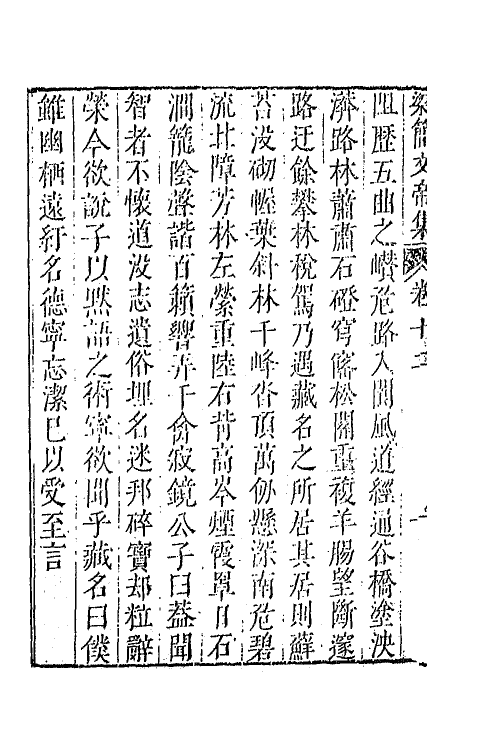 梁簡文帝集 卷十二
阻歴五曲之嶮危路入閶風道經通谷橋塗泱
濟路林蕭蕭石磴穹窿松關重複羊腸望斷邃
路迂餘攀林稅駕乃遇藏名之所居其居則蘚
苔没砌幄葉斜林千峰杳頂萬仞懸深南危碧
流北障芳林左縈重陸右背高岑煙霞罩日石
澗籠陰聲諧百籟響弄千禽寂鏡公子曰蓋聞
智者不懷道没志遺俗埋名迷邦碎寶却粒辭
榮今欲說子以黙語之術寧欲聞乎藏名曰僕
雖幽栖遠紆名德寧忘潔已以受至言